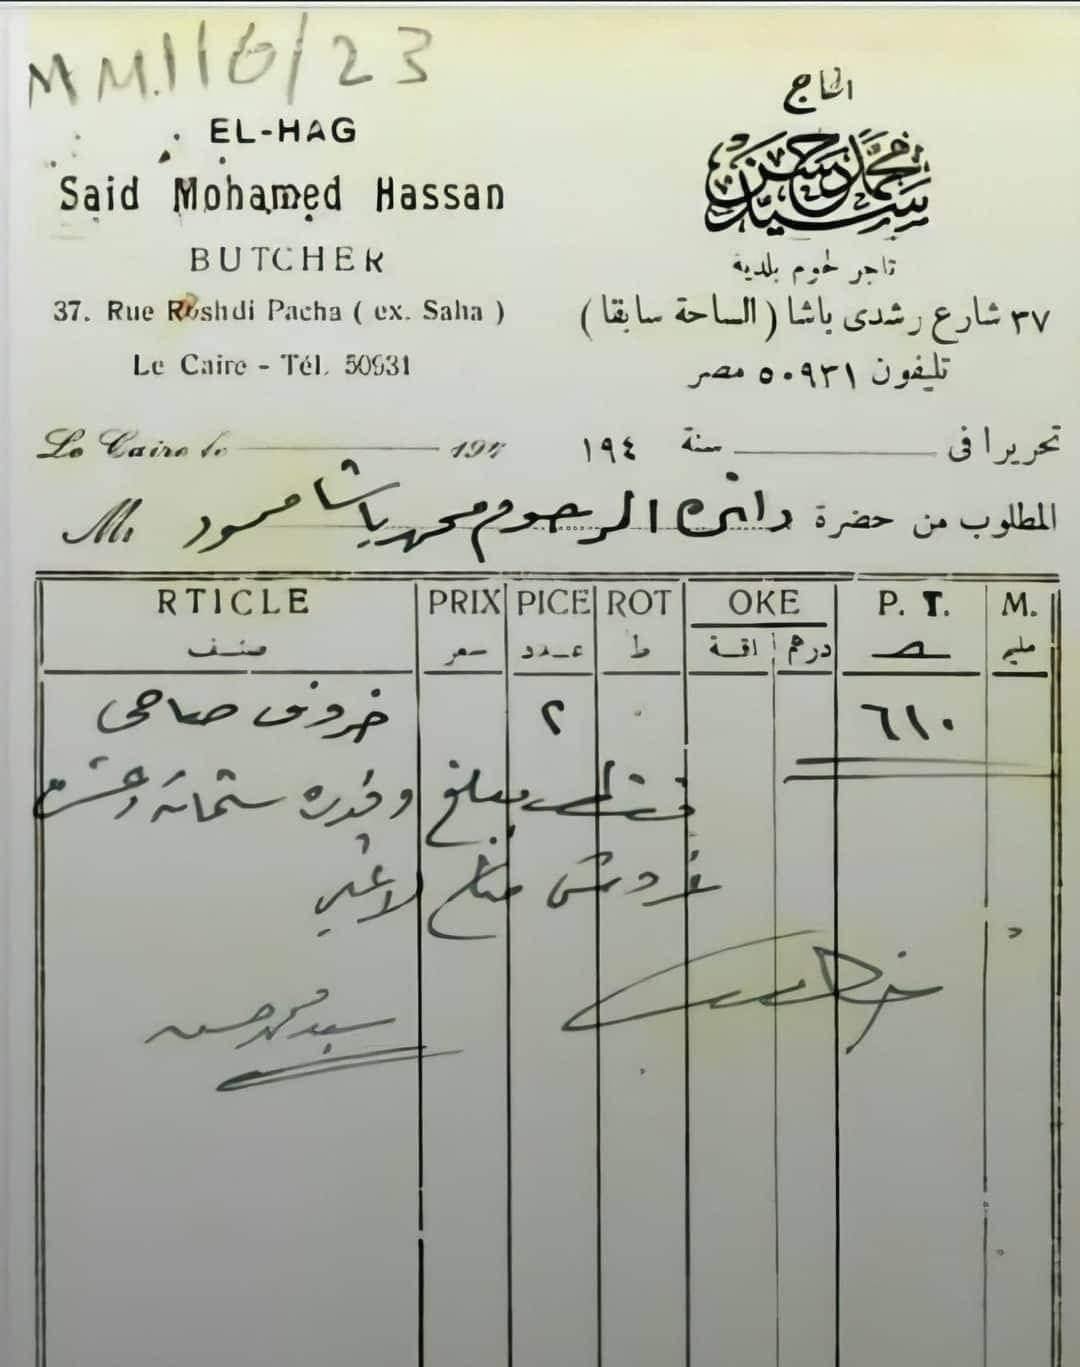 MM.116/23
EL-HAG
Said Mohamed Hassan
BUTCHER
37. Rue Roshdi Pacha ( ex. Saha )
Le Caire - Tél. 50931
الحاج
سيد محمد حسن
تاجر لحوم بلدية
٣٧ شارع رشدى باشا (الساحة سابقا)
تليفون ٥٠٩٣١ مصر
Le Caire le 194
تحريرا فى سنة ١٩٤
المطلوب من حضرة دائرة المرحوم محمد باشا محمود
M.
RTICLE PRIX PICE ROT OKE P. T. M.
صنف سعر عدد ط اقة درهم مليم
خروف صاحى ٢ ٦١٠
فقط مبلغ وقدره ستمائة وعشرة
قروش صاغ لاغير
سيد محمد حسن